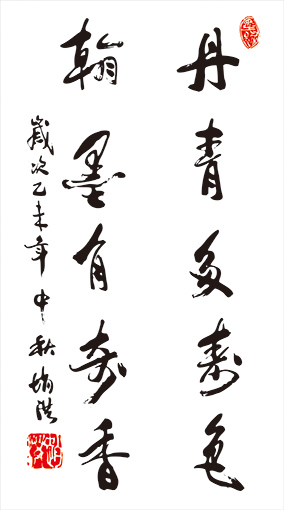 丹青多壽色
翰墨有奇香
歲次乙未年中秋